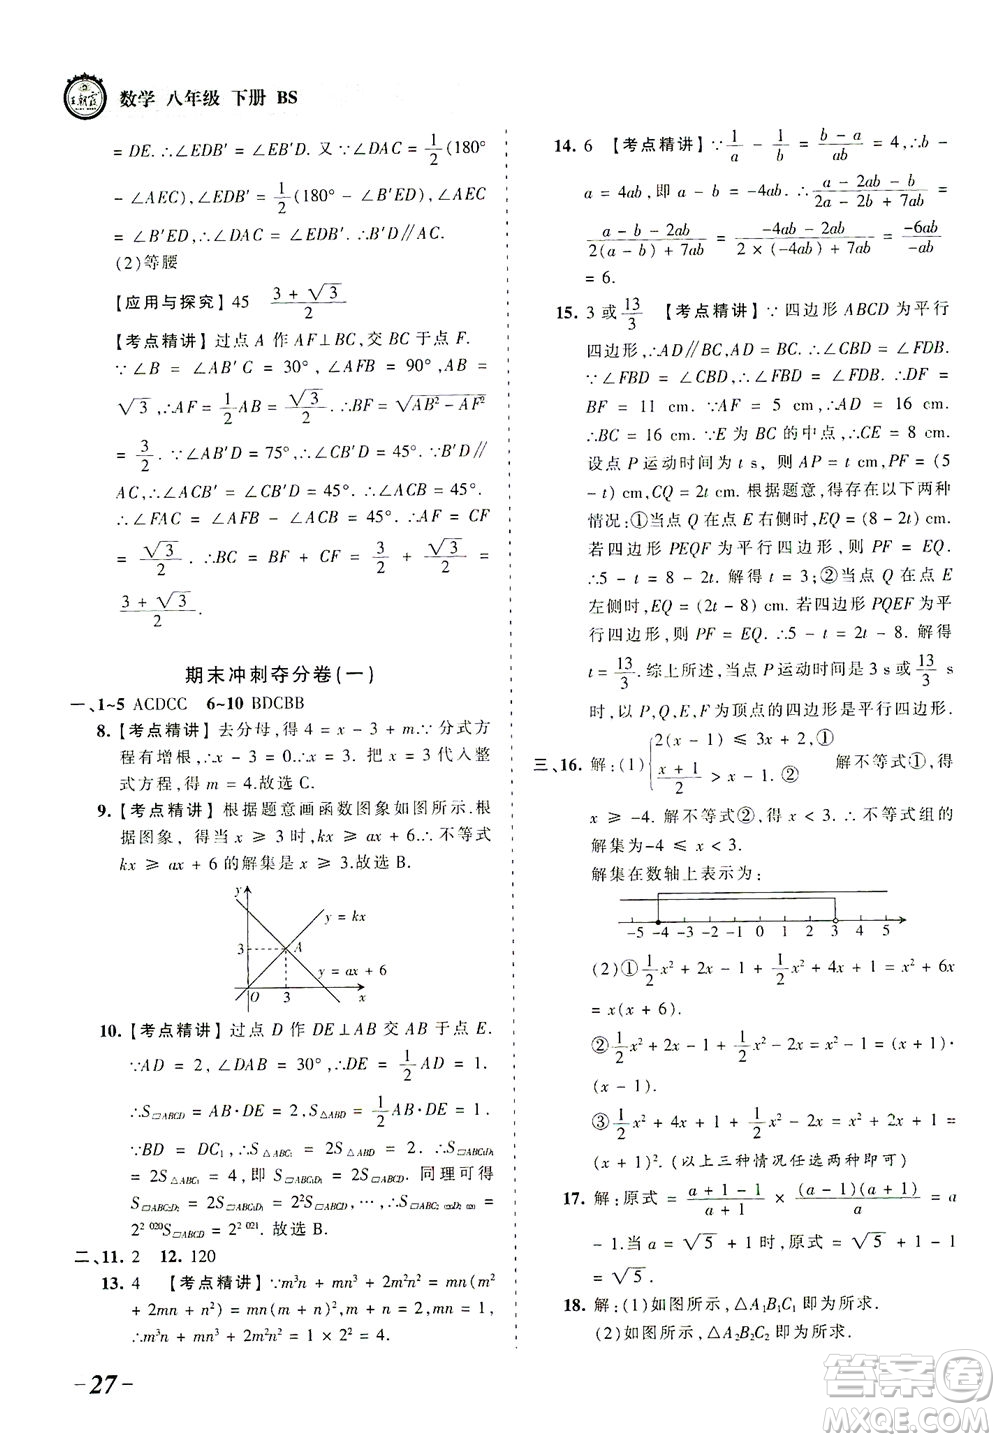 王朝霞
数学 八年级 下册 BS
= DE. ∴∠EDB′ = ∠EB′D. 又 ∵∠DAC = 1/2(180°
- ∠AEC),∠EDB′ = 1/2(180° - ∠B′ED),∠AEC
= ∠B′ED,∴∠DAC = ∠EDB′. ∴B′D∥AC.
(2)等腰
【应用与探究】45 (3+√3)/2
【考点精讲】过点 A 作 AF⊥BC,交 BC 于点 F.
∵∠B = ∠AB′C = 30°,∠AFB = 90°,AB =
√3,∴AF = 1/2AB = √3/2. ∴BF = √(AB² - AF²) =
3/2. ∵∠AB′D = 75°,∴∠CB′D = 45°. ∵B′D∥
AC,∴∠ACB′ = ∠CB′D = 45°. ∴∠ACB = 45°.
∴∠FAC = ∠ACB = 45°. ∴AF = CF
= √3/2. ∴BC = BF + CF = 3/2 + √3/2 =
(3+√3)/2.
期末冲刺夺分卷(一)
一、1~5 ACDCC 6~10 BDCBB
8.【考点精讲】去分母,得 4 = x - 3 + m.∵分式方
程有增根,∴x - 3 = 0.∴x = 3. 把 x = 3 代入整
式方程,得 m = 4.故选 C.
9.【考点精讲】根据题意画函数图象如图所示.根
据图象,得当 x ⩾ 3 时,kx ⩾ ax + 6.∴不等式
kx ⩾ ax + 6 的解集是 x ⩾ 3.故选 B.
y
y = kx
3
A
y = ax + 6
O 3 x
10.【考点精讲】过点 D 作 DE⊥AB 交 AB 于点 E.
∵AD = 2,∠DAB = 30°,∴DE = 1/2AD = 1.
∴S▱ABCD = AB·DE = 2,S△ABD = 1/2AB·DE = 1.
∵BD = DC₁,∴S△ABC₁ = 2S△ABD = 2. ∴S▱ABC₁D₁
= 2S△ABC₁ = 4,即 S▱ABC₁D₁ = 2S▱ABCD. 同理可得
S▱ABC₂D₂ = 2S▱ABC₁D₁ = 2²S▱ABCD,∴S▱ABC₂ ₀₂₀D₂ ₀₂₀ =
2² ⁰²⁰S▱ABCD = 2² ⁰²¹. 故选 B.
二、11. 2 12. 120
13. 4 【考点精讲】∵m³n + mn³ + mn = mn(m²
+ 2mn + n²) = mn(m + n)², m + n = 2,mn = 1,
∴m³n + mn³ + 2m²n² = 1 × 2² = 4.
- 27 -
14. 6 【考点精讲】∵1/a - 1/b = (b - a)/ab = 4,∴b -
a = 4ab,即 a - b = -4ab. ∴(a - 2ab - b)/(2a - 2b + 7ab) =
(a - b - 2ab)/(2(a - b) + 7ab) = (-4ab - 2ab)/(2 × (-4ab) + 7ab) = -6ab/-ab
= 6.
15. 3 或 13/3 【考点精讲】∵四边形 ABCD 为平行
四边形,∴AD∥BC,AD = BC. ∴∠CBD = ∠FDB.
∵∠FBD = ∠CBD,∴∠FBD = ∠FDB. ∴DF =
BF = 11 cm. ∵AF = 5 cm,∴AD = 16 cm.
∴BC = 16 cm. ∵E 为 BC 的中点,∴CE = 8 cm.
设点 P 运动时间为 t s,∴AP = t cm,PF = (5
- t) cm,CQ = 2t cm. 根据题意,得存在以下两种
情况:①当点 Q 在点 E 右侧时,EQ = (8 - 2t) cm.
若四边形 PEQF 为平行四边形,则 PF = EQ.
∴5 - t = 8 - 2t. 解得 t = 3;②当点 Q 在点 E
左侧时,EQ = (2t - 8) cm. 若四边形 PQEF 为平
行四边形,则 PF = EQ.∴5 - t = 2t - 8. 解得
t = 13/3. 综上所述,当点 P 运动时间为 3 s 或 13/3 s
时,以 P,Q,E,F 为顶点的四边形是平行四边形.
三、16. 解:(1){2(x - 1) ⩽ 3x + 2,① (x + 1)/2 > x - 1. ② 解不等式①,得
x ⩾ -4. 解不等式②,得 x < 3. ∴不等式组的
解集为 -4 ⩽ x < 3.
解集在数轴上表示为:
-5 -4 -3 -2 -1 0 1 2 3 4 5
(2)①1/2x² + 2x - 1 + 1/2x² + 4x + 1 = x² + 6x
= x(x + 6).
②1/2x² + 2x - 1 + 1/2x² - 2x = x² - 1 = (x + 1)·
(x - 1).
③1/2x² + 4x + 1 + 1/2x² - 2x = x² + 2x + 1 =
(x + 1)². (以上三种情况任选两种即可)
17. 解:原式 = (a + 1 - 1)/(a + 1) × (a - 1)(a + 1)/a = a
- 1. 当 a = √5 + 1 时,原式 = √5 + 1 - 1 =
√5.
18. 解:(1)如图所示,△A₁B₁C₁ 即为所求.
(2)如图所示,△A₂B₂C₂ 即为所求.
答案圈
MXQE.COM